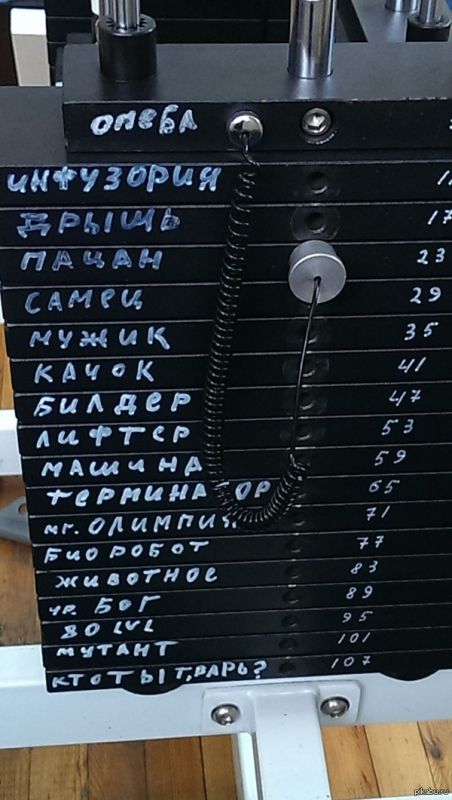 ОМЕБА
ИНФУЗОРИЯ
ДРЫЩЬ 17
ПАЦАН 23
САМЕЦ 29
МУЖИК 35
КАЧОК 41
БИЛДЕР 47
ЛИФТЕР 53
МАШИНА 59
ТЕРМИНАТОР 65
мг. ОЛИМПИЯ 71
БИОРОБОТ 77
ЖИВОТНОЕ 83
БОГ 89
80 LVL 95
МУТАНТ 101
КТО ТЫ ТВАРЬ? 107
pikabu.ru